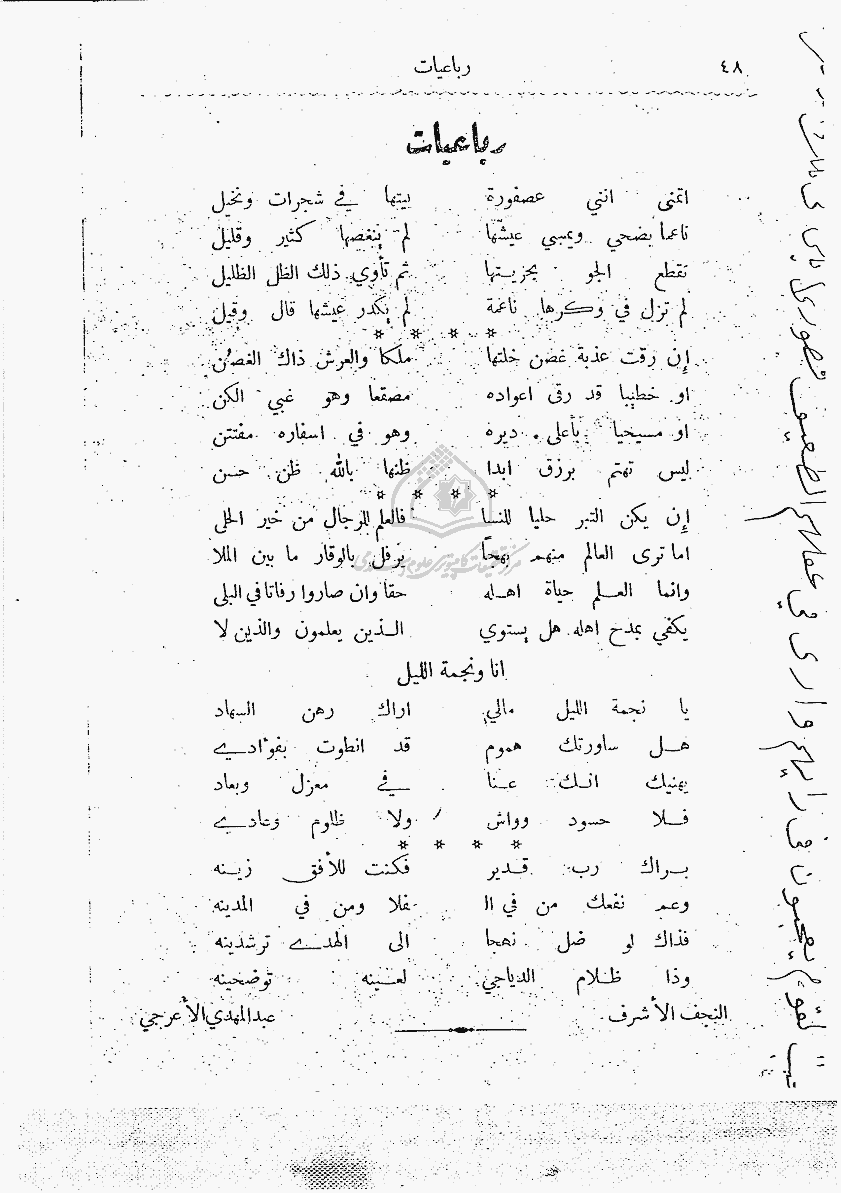 ٤٨ رباعيات
رباعيات
اتمنى انني عصفورة بيتها في شجرات ونخيل
ناعما يضحي ويمسي عيشها لم ينغصها كثير وقليل
تقطع الجو بجزيتها ثم تأوي ذلك الظل الظليل
لم تزل في وكرها ناعمة لم يكدر عيشها قال وقيل
* * * *
إن رقت عذبة غصن خلتها ملكا والعرش ذاك الغصن
او خطيبا قد رقى اعواده مصقعا وهو غبي الكن
او مسيحيا بأعلى ديره وهو في اسفاره مفتتن
ليس تهتم برزق ابدا ظنها بالله ظن حسن
* * * *
إن يكن التبر حليا للنسا فالعلم للرجال من خير الحلى
اما ترى العالم منهم بهجاً يرفل بالوقار ما بين الملا
وانما العلم حياة اهله حقا وان صاروا رفاتا في البلى
يكفي بمدح اهله هل يستوي الذين يعلمون والذين لا
انا ونجمة الليل
يا نجمة الليل مالي اراك رهن السهاد
هل ساورتك هموم قد انطوت بفوءادي
يهنيك انك عنا في معزل وبعاد
فلا حسود وواش ولا ظلوم وعادي
* * * *
براك رب قدير فكنت للأفق زينه
وعم نفعك من في ال فلا ومن في المدينه
فذاك لو ضل نهجا الى الهدى ترشدينه
وذا ظلام الدياجي لعينه توضحينه
النجف الأشرف عبدالمهدي الأعرجي